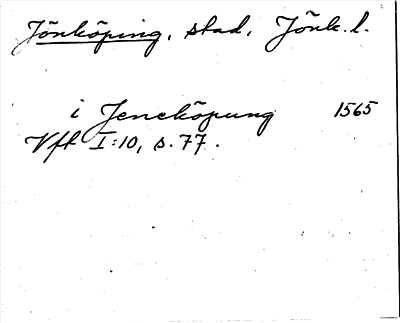 Jönköping, stad, Jönk. l.
i Jeneköpung 1565
Vft I:10, s. 77.